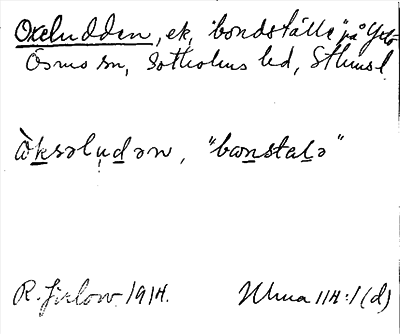 Oxeludden, ek, "bondställe" på
Ösmo sn, Sotholms hd, Sthms l.
Òksəlu̩dən, "bonstaLə"
R. Jirlow. 1914.
Ulma 114:1 (d)